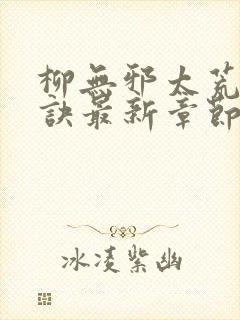 柳無邪太荒
訣最新章節
冰凌紫幽